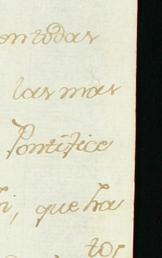 en todas
las mas
Pontifice
que ha
to,